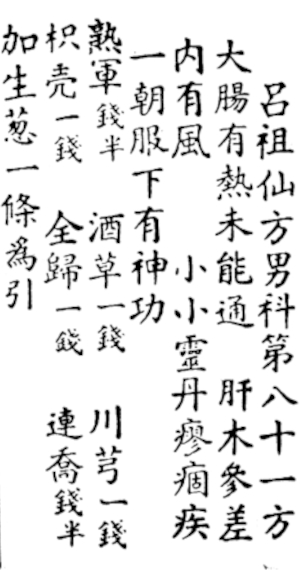 呂祖仙方男科第八十一方
大腸有熱未能通 肝木參差
內有風 小小靈丹瘳痼疾
一朝服下有神功
熟軍錢半 酒草一錢 川芎一錢
枳壳一錢 全歸一錢 連喬錢半
加生葱一條為引